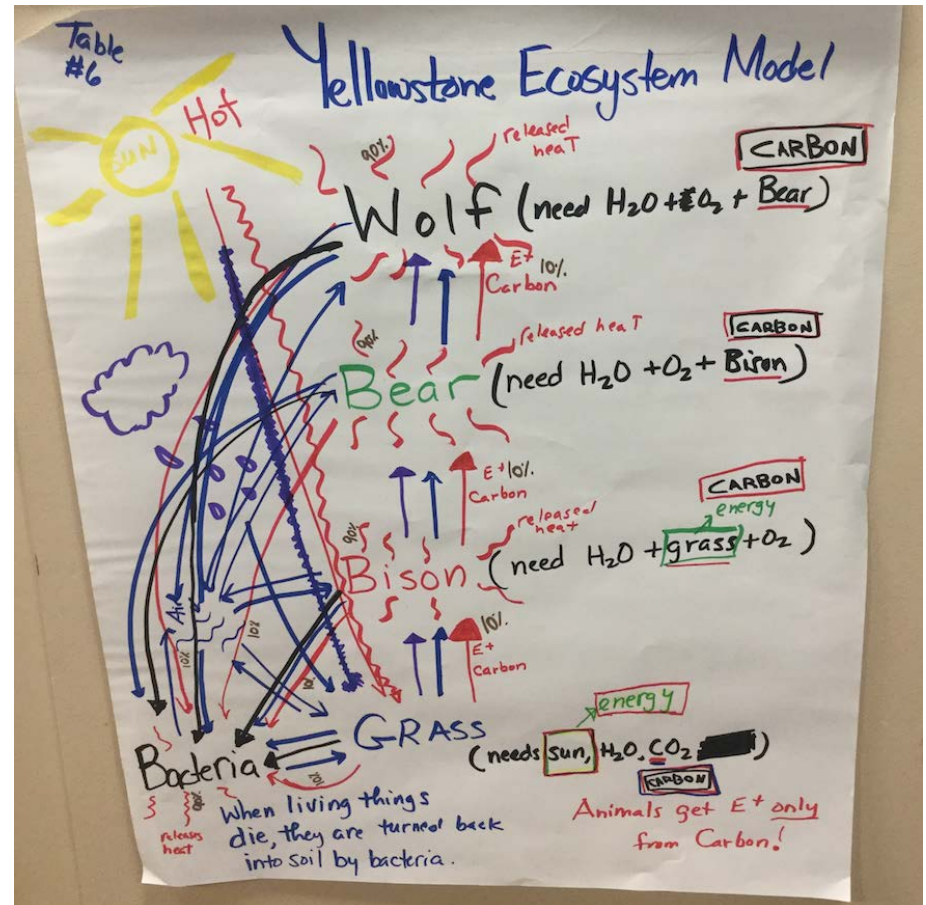 Table
#6
Yellowstone Ecosystem Model
SUN
Hot
90%
released
heaT
CARBON
Wolf (need H₂O + O₂ + Bear)
E+
10%
Carbon
90%
released heaT
CARBON
Bear (need H₂O + O₂ + Bison)
E+ 10%
Carbon
CARBON
energy
90%
released
heat
Bison (need H₂O + grass + O₂)
Air
10%
10%
10%
E+
Carbon
energy
GRASS (needs sun, H₂O, CO₂)
CARBON
Bacteria
10%
90%
releases
heat
When living things
die, they are turned back
into soil by bacteria.
Animals get E+ only
from Carbon!